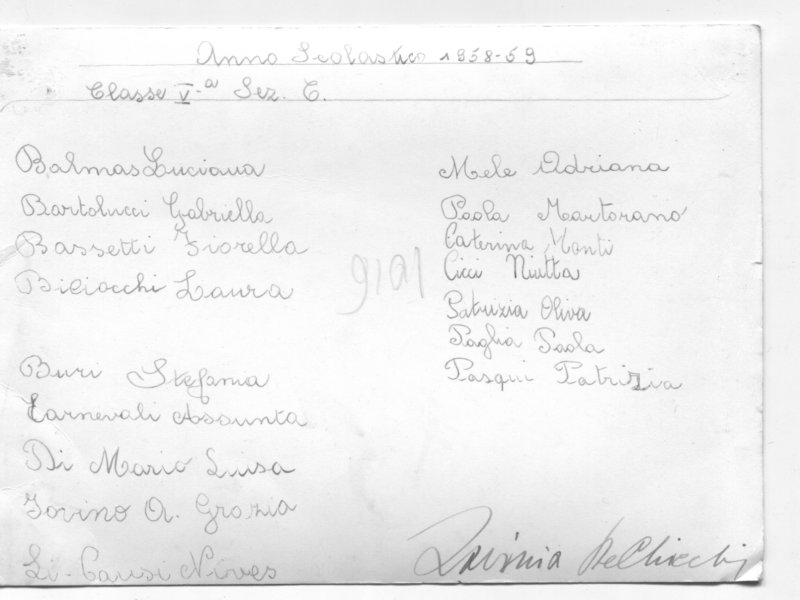 Anno Scolastico 1958-59
Classe V.a Sez. C.
Balmas Luciana
Bartolucci Gabriella
Bassetti Fiorella
Biciocchi Laura
Buri Stefania
Carnevali Assunta
Di Mario Luisa
Iovino A. Grazia
Li-Causi Nives
Mele Adriana
Paola Martorano
Caterina Monti
Cicci Niutta
Patrizia Oliva
Paglia Paola
Pasqui Patrizia